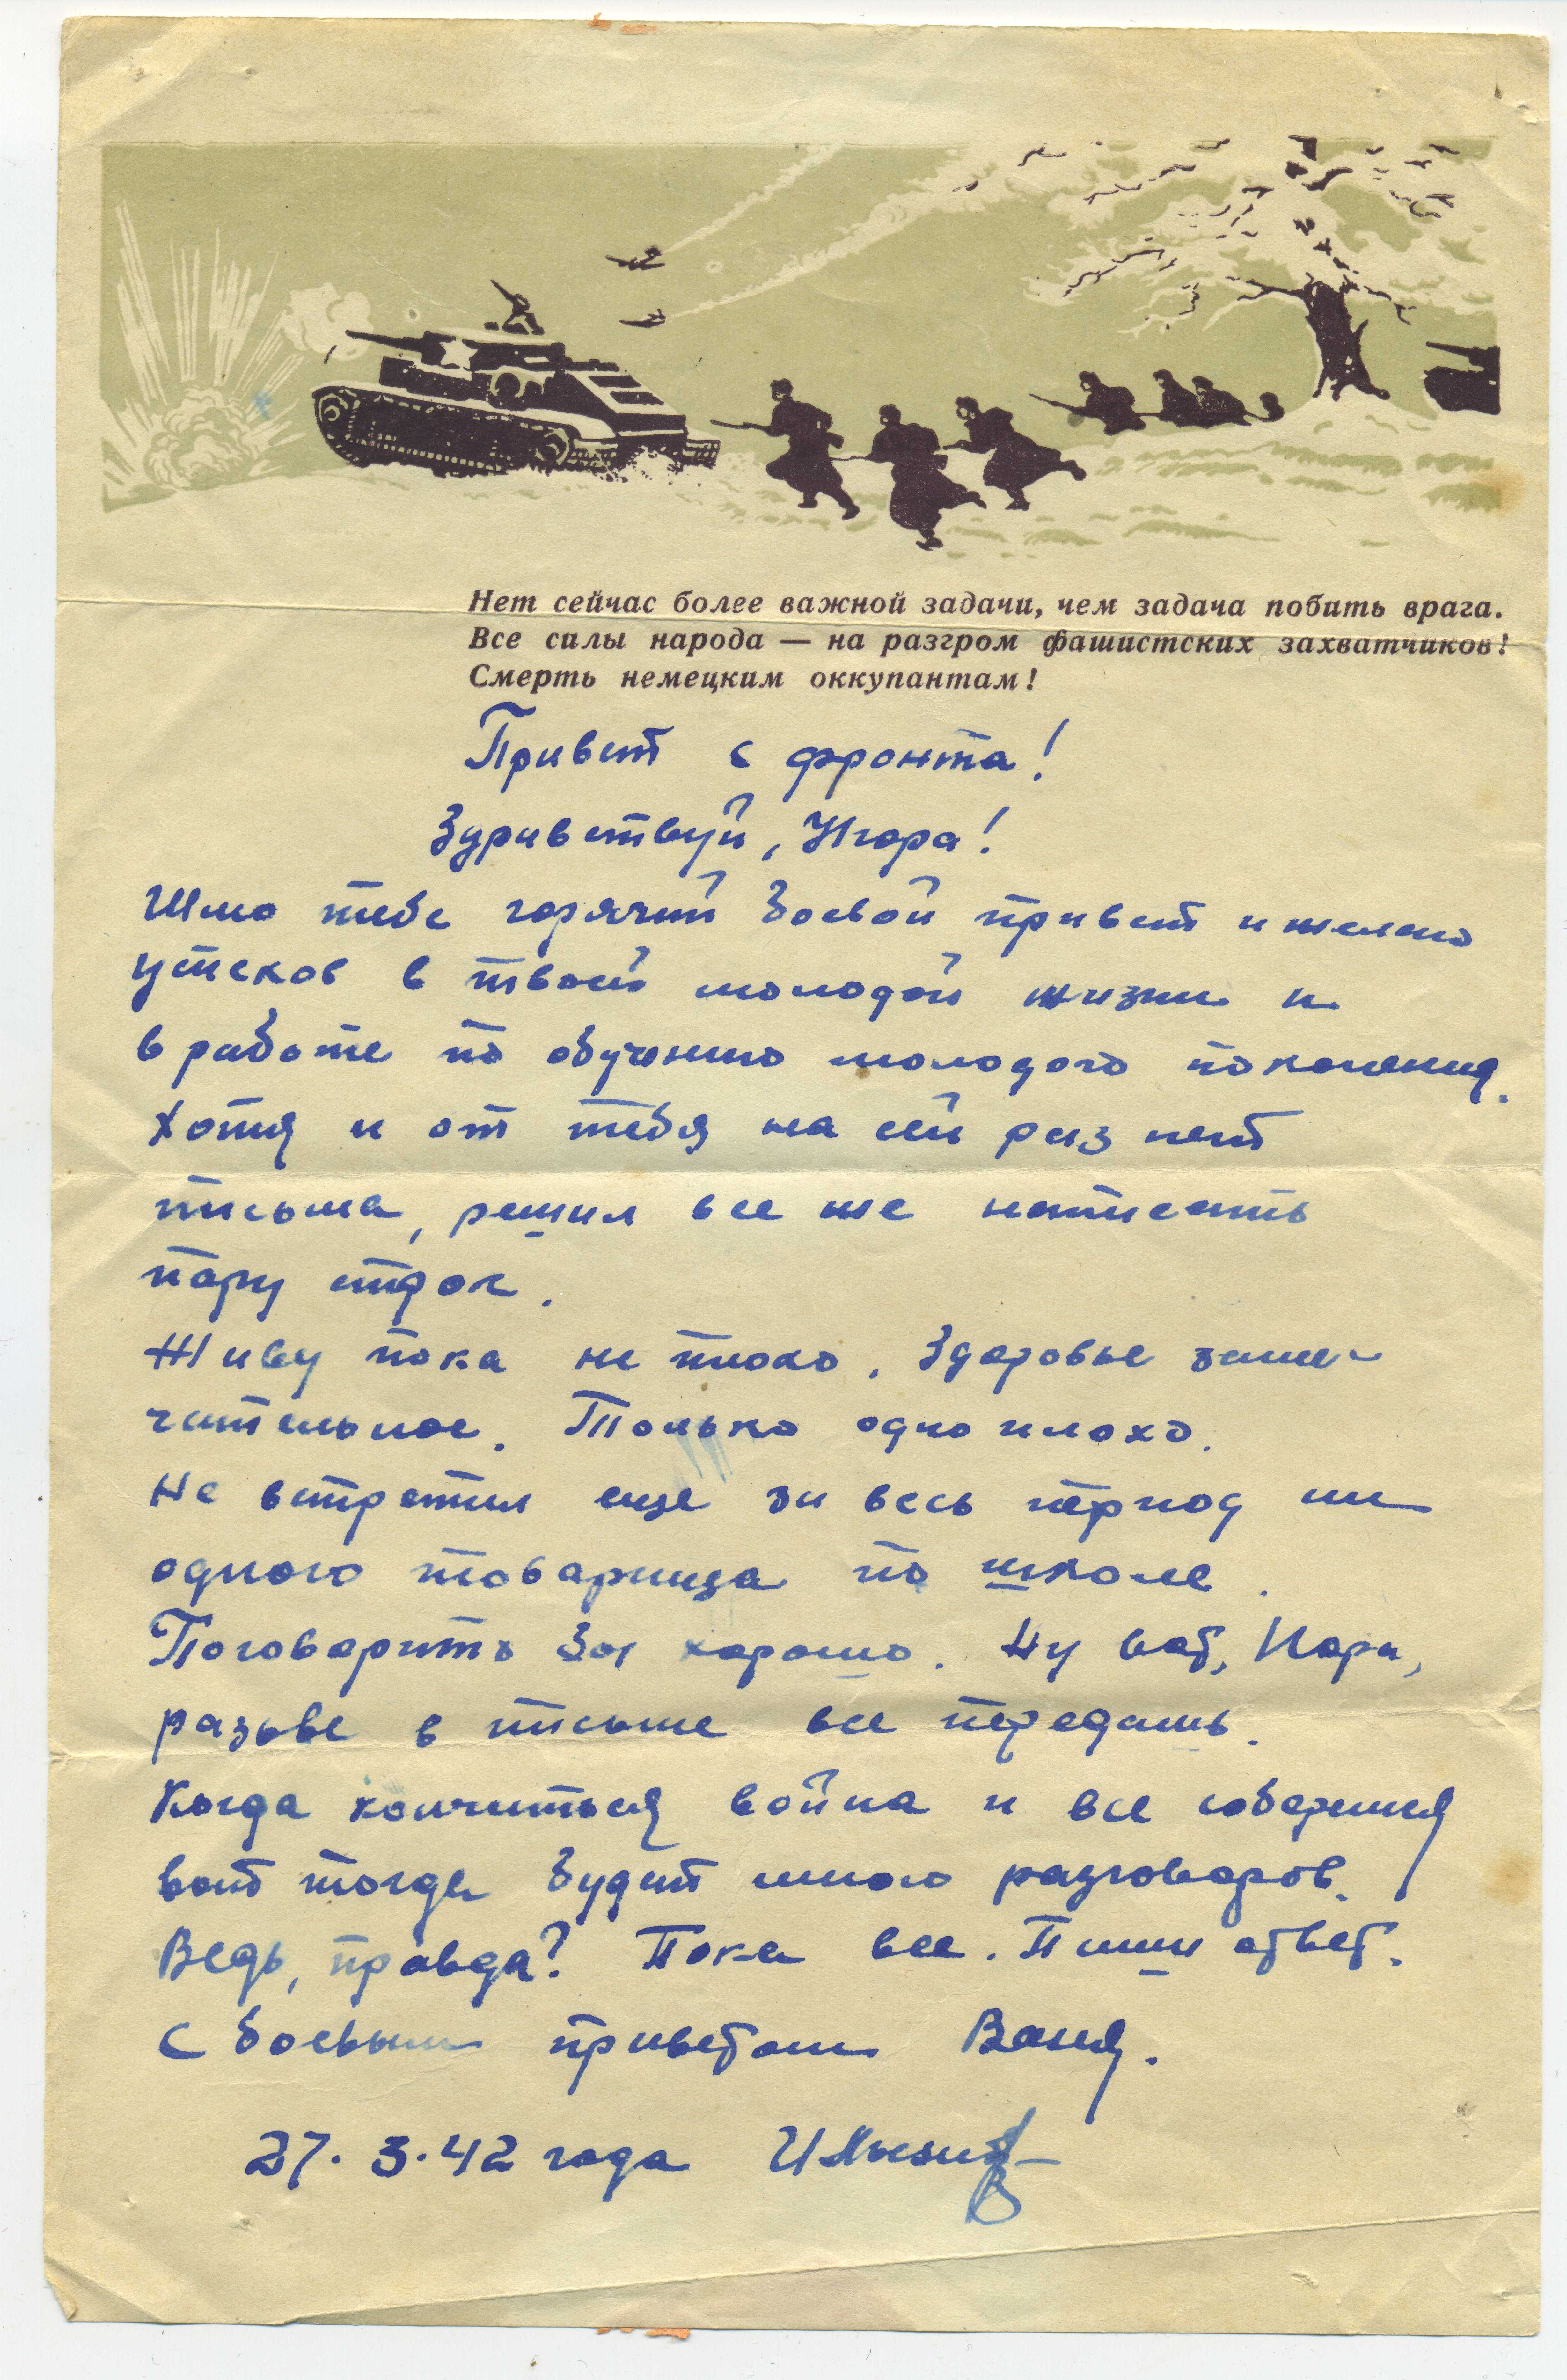 Нет сейчас более важной задачи, чем задача побить врага.
Все силы народа — на разгром фашистских захватчиков!
Смерть немецким оккупантам!
Привет с фронта!
Здравствуй, Нюра!
Шлю тебе горячий боевой привет и желаю
успехов в твоей молодой жизни и
в работе по обучению молодого поколения.
Хотя и от тебя на сей раз нет
письма, решил все же написать
пару строк.
Живу пока не плохо. Здоровье заме-
чательное. Только одно плохо.
Не встретил еще за весь период ни
одного товарища по школе.
Поговорить бы хорошо. Ну вот, Нюра,
разьве в письме все передашь.
Когда кончиться война и все соберемся
вот тогда будет много разговоров.
Ведь, правда? Пока все. Пиши ответ.
С боевым приветом Ваня.
27.3.42 года